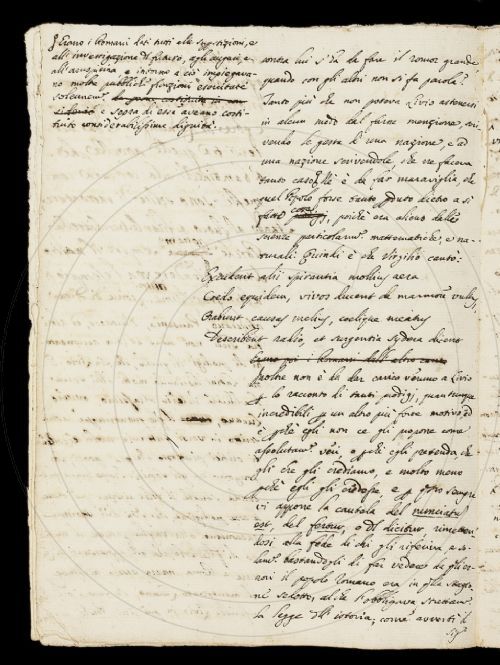 Erano i Romani dati tutti alle superstizioni, e
all'investigazione di futuro, agli augurj, e
all'aruspicina e intorno a ciò impiegava-
no molte pubblich.e funzioni esercitate
solennem.e
e sopra di esse aveano costi-
tuite considerabilissime dignità.
contra lui s'ha da fare il romor grande
quando con gli altri non si fa parola?
Tanto più che non poteva Livio astenersi
in alcun modo dal farne menzione, scri-
vendo le gesta d'una nazione, e ad
una nazione scrivendole, che ne faceva
tanto caso. Nè è da far maraviglia, che
quel Popolo fosse tanto dietro a sì
fatte cose, poichè era alieno dalle
scienze particolarm. mattematiche, e na-
turali. Quindi è che Virgilio cantò:
Excudent alii spirantia mollius aera
Credo equidem, vivos ducent de marmore vultus,
Orabunt causas melius, coelique meatus
Describent radio, et surgentia sydera dicent
Inoltre non è da dar carico veruno a Livio
p lo racconto di tanti prodigj, quantunque
incredibili, p un altro più forte motivo, ed
è pchè egli non ce gli propone come
assolutam. veri, o pchè egli pretenda, che
gli che gli crediamo, e molto meno
pchè egli gli credesse, e sempre
vi appone la cautela del nunciatum
est, del fertur, o del dicitur rimetten-
dosi alla fede di chi gli riferiva, e so-
lam. bastandogli di far vedere da gli er-
rori il popolo romano era in qlla stagio-
ne sedotto, al che l'obbligava strettam.
la legge dell'istoria; come avvertì il